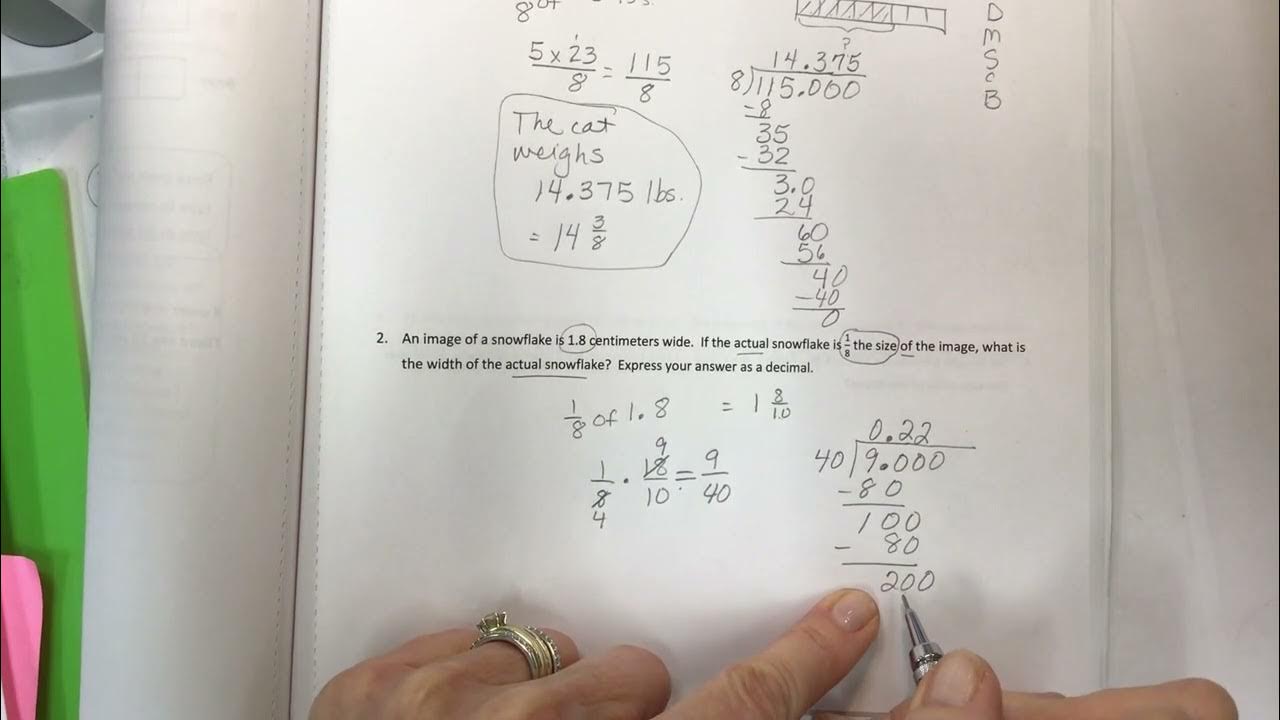 8 of
D
M
S
C
B
?
5 x 23 / 8 = 115 / 8
14.375
8)115.000
-8
35
- 32
3.0
24
60
56
40
-40
0
The cat
weighs
14.375 lbs.
= 14 3/8
2. An image of a snowflake is 1.8 centimeters wide. If the actual snowflake is 1/8 the size of the image, what is
the width of the actual snowflake? Express your answer as a decimal.
1/8 of 1.8 = 1 8/10
1/8 · 18/10 = 9/40
9
4
0.22
40)9.000
-80
100
- 80
200